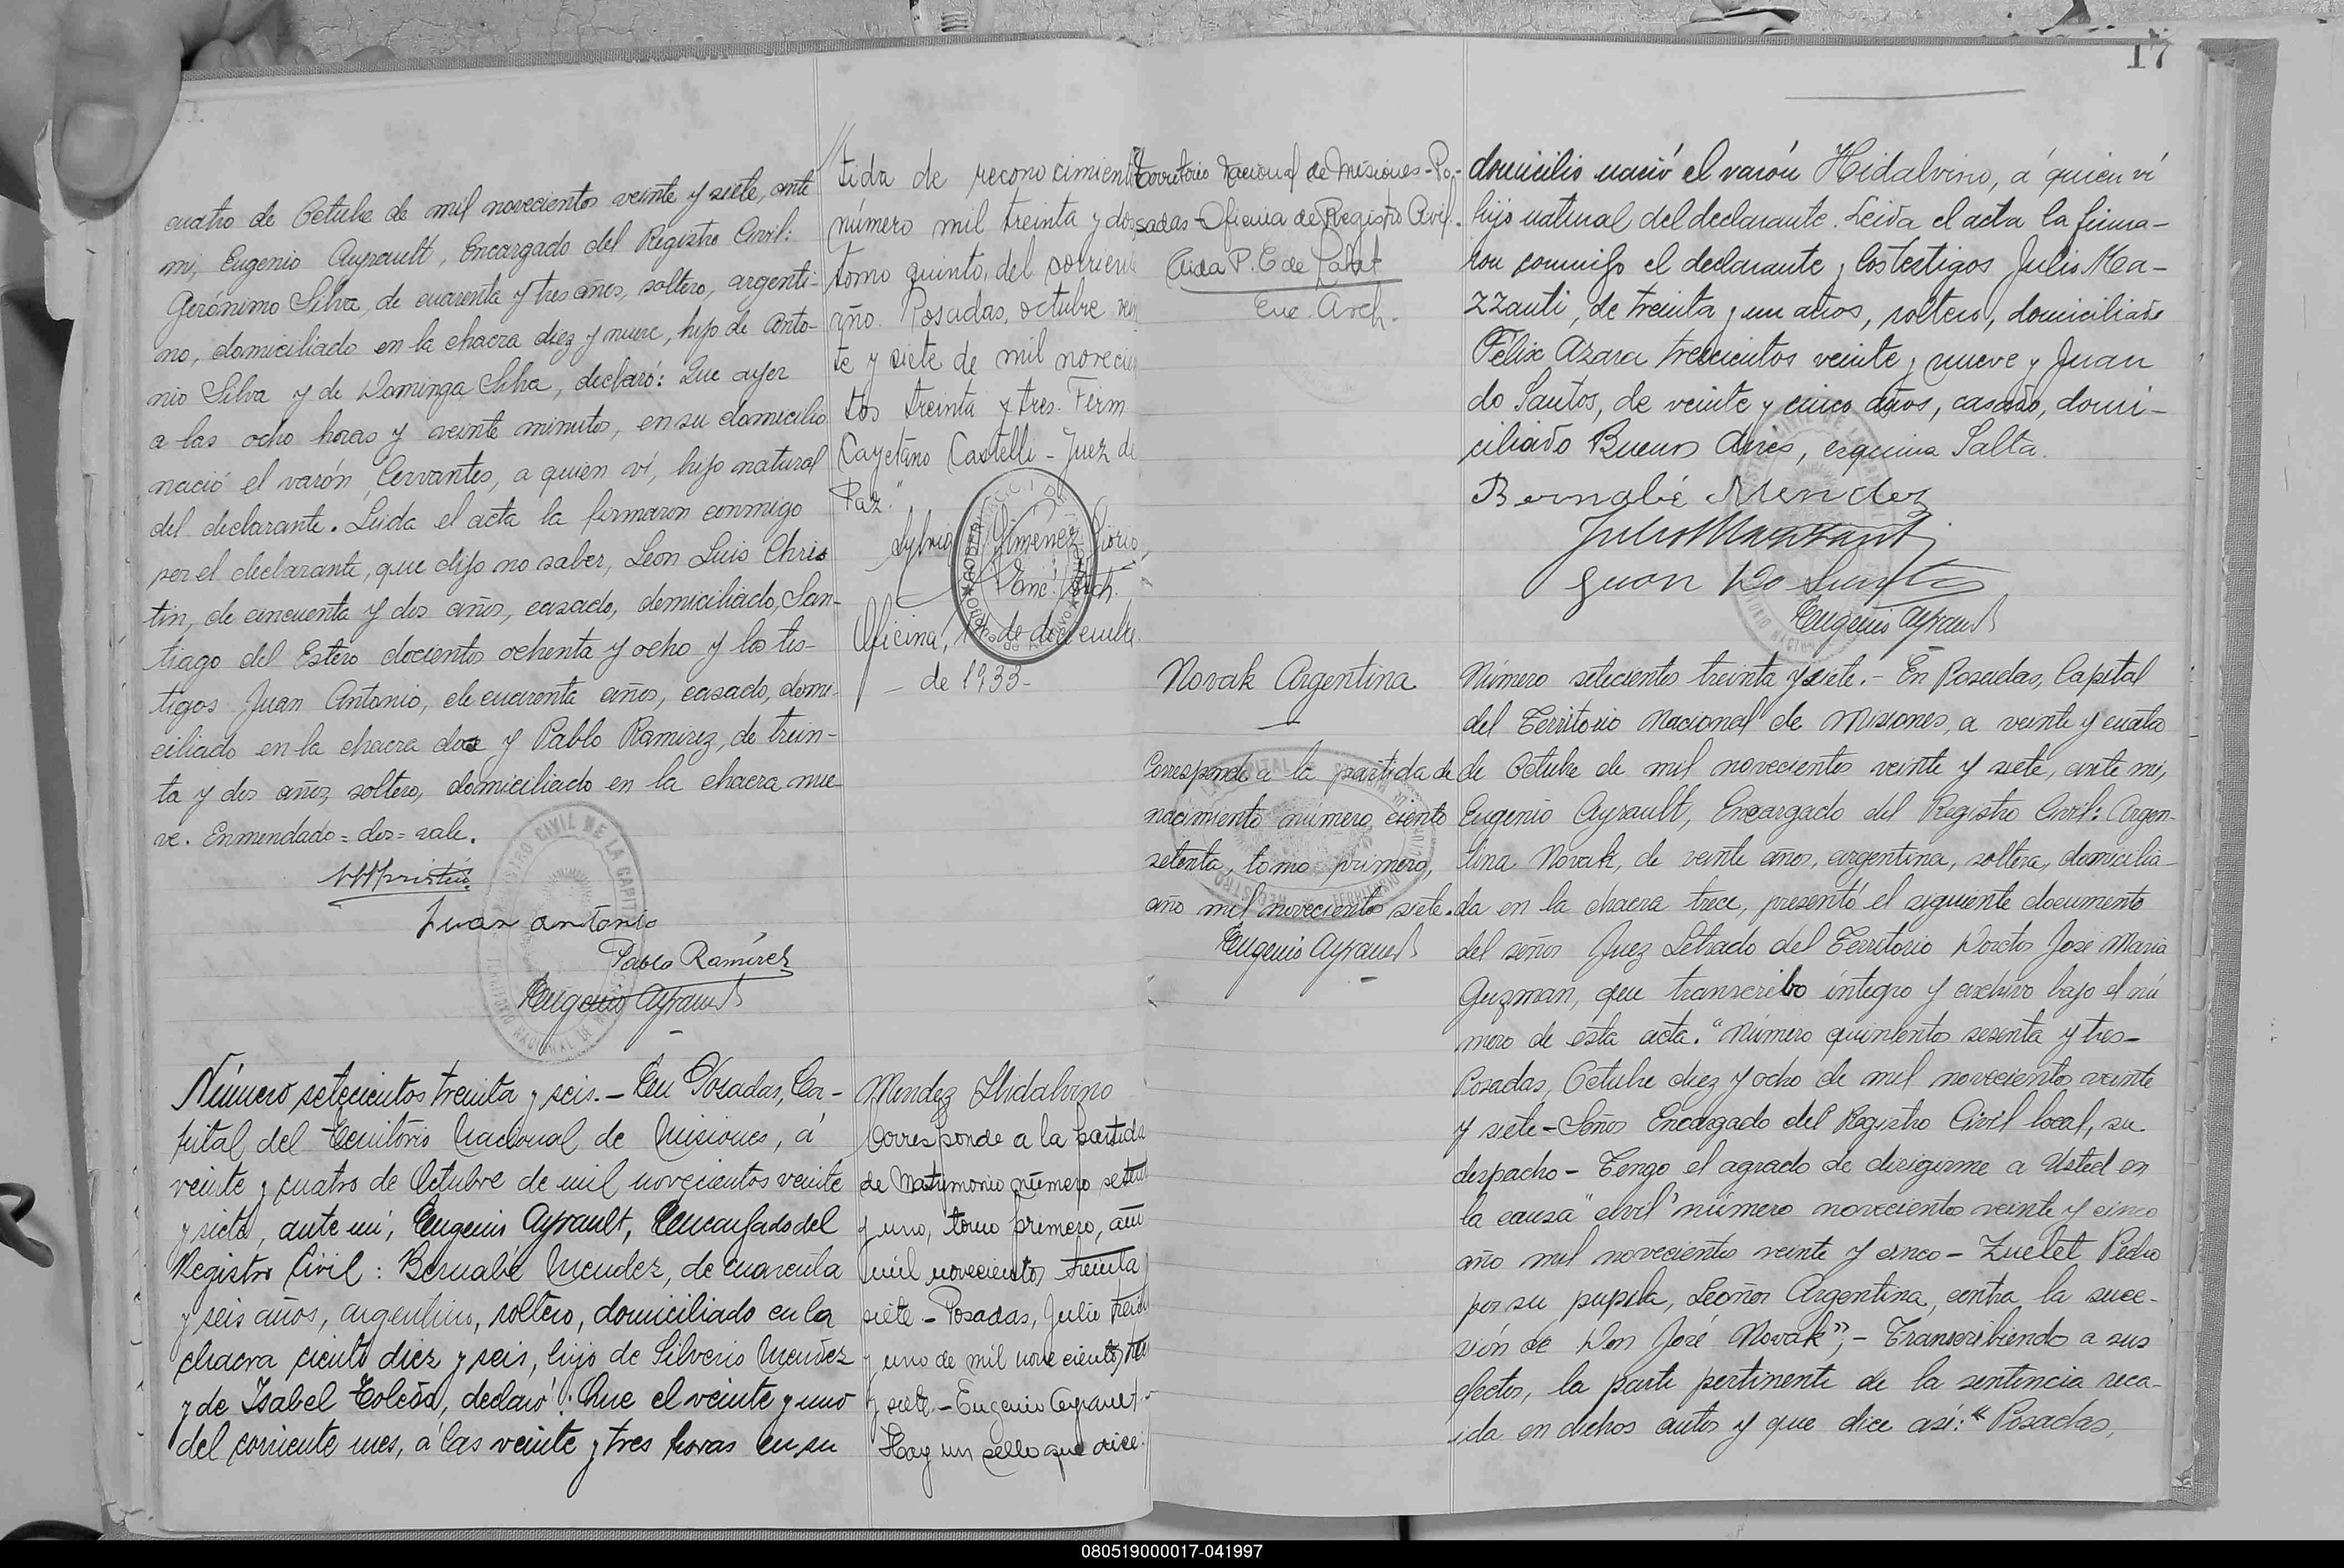 17
cuatro de Octubre de mil novecientos veinte y siete, ante
mi, Eugenio Ayrault, Encargado del Registro Civil:
Gerónimo Silva, de cuarenta y tres años, soltero, argenti-
no, domiciliado en la chacra diez y nueve, hijo de Anto-
nio Silva y de Dominga Silva, declaró: Que ayer
a las ocho horas y veinte minutos, en su domicilio
nació el varón, Cervantes, a quien ví, hijo natural
del declarante. Leida el acta la firmaron conmigo
por el declarante, que dijo no saber, Leon Luis Chris
tin, de cincuenta y dos años, casado, domiciliado, San-
tiago del Estero docientos ochenta y ocho y los tes-
tigos Juan Antonio, de cuarenta años, casado, domi-
ciliado en la chacra dos y Pablo Ramirez, de trein-
ta y dos años, soltero, domiciliado en la chacra nue-
ve. Enmendado = dos = vale.
Juan Antonio
Pablo Ramirez
Eugenio Ayrault
Número setecientos treinta y seis. - En Posadas, Ca-
pital del Territorio Nacional de Misiones, á
veinte y cuatro de Octubre de mil novecientos veinte
y siete, ante mi, Eugenio Ayrault, Encargado del
Registro Civil: Bernabé Mendez, de cuarenta
y seis años, argentino, soltero, domiciliado en la
chacra ciento diez y seis, hijo de Silverio Mendez
y de Isabel Toledo, declaró: Que el veinte y uno
del corriente mes, á las veinte y tres horas en su
tida de reconocimiento
número mil treinta y dos,
tomo quinto, del corriente
año. Posadas, octubre vein
te y siete de mil novecien
tos treinta y tres. Firm
Cayetano Castelli - Juez de
Paz."
Gimenez
Enc. Arch.
Oficina, de diciembre
- de 1933 -
Mendez Hidalvino
Corresponde a la partida
de Matrimonio número setenta
y uno, tomo primero, año
mil novecientos treinta
siete - Posadas, Julio treinta
y uno de mil novecientos trein
y siete. - Eugenio Ayrault -
Hay un sello que dice:
Territorio Nacional de Misiones - Po-
sadas - Oficina de Registro Civil.
Aida P. C de
Enc. Arch.
Novak Argentina
Corresponde a la partida de
nacimiento número ciento
setenta, tomo primero,
año mil novecientos siete.
Eugenio Ayrault
domicilio nació el varón Hidalvino, á quien ví
hijo natural del declarante. Leida el acta la firma-
ron conmigo el declarante y los testigos Julio Ma-
zzanti, de treinta y un años, soltero, domiciliado
Félix Azara trescientos veinte y nueve y Juan
do Santos, de veinte y cinco años, casado, domi-
ciliado Buenos Aires, esquina Salta.
Bernabé Mendez
Julio Mazzanti
Juan Do Santos
Eugenio Ayrault
Número setecientos treinta y siete. - En Posadas, Capital
del Territorio Nacional de Misiones, a veinte y cuatro
de Octubre de mil novecientos veinte y siete, ante mi,
Eugenio Ayrault, Encargado del Registro Civil: Argen-
tina Novak, de veinte años, argentina, soltera, domicilia-
da en la chacra trece, presentó el siguiente documento
del señor Juez Letrado del Territorio Doctor José Maria
Guzman, que transcribo integro y archivo bajo el nú
mero de esta acta. "Número quinientos sesenta y tres -
Posadas, Octubre diez y ocho de mil novecientos veinte
y siete - Señor Encargado del Registro Civil local, su
despacho - Tengo el agrado de dirigirme a Usted en
la causa "civil" número novecientos veinte y cinco
año mil novecientos veinte y cinco - Zuelet Pedro
por su pupila, Leonor Argentina, contra la suce-
sión de Don José Novak"; - Transcribiendo a sus
efectos, la parte pertinente de la sentencia reca-
ida en dichos autos y que dice así: "Posadas,
080519000017-041997